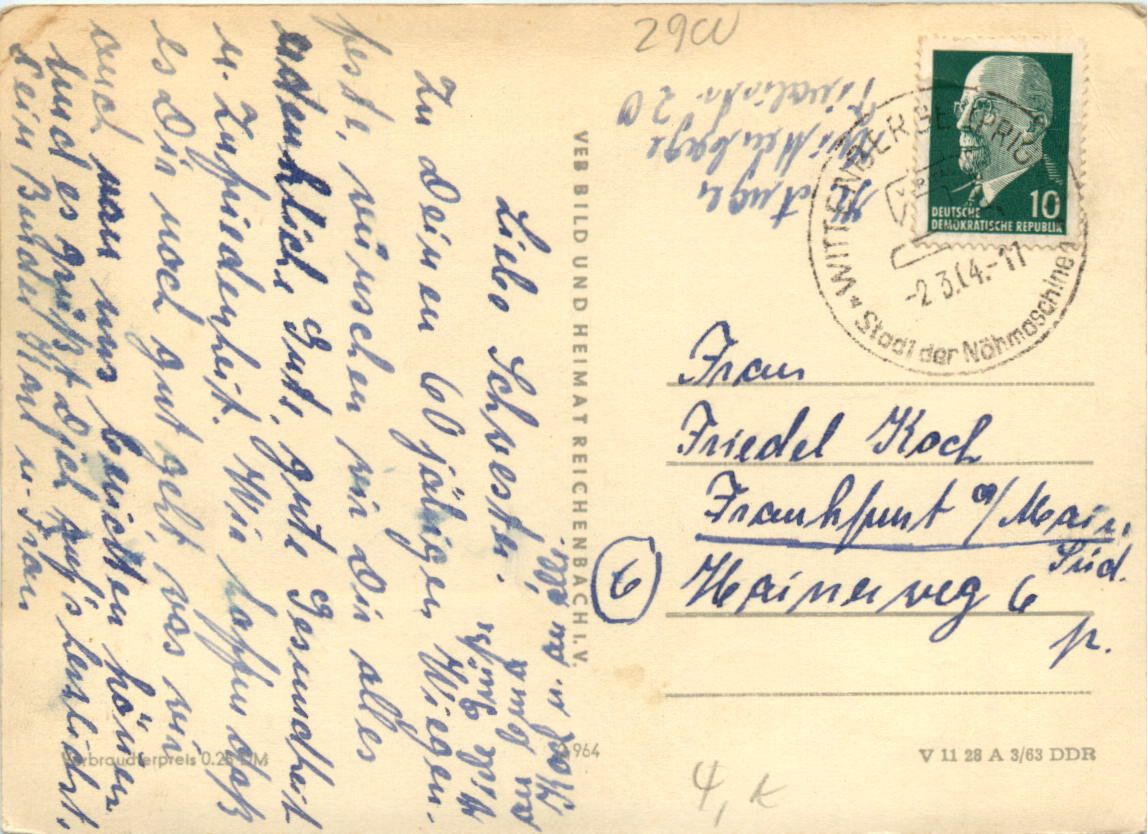 Liebe Schwester.
Zu Deinen 60 jährigen Wiegen-
feste, wünschen wir Dir alles
erdenkliche Gute, gute Gesundheit
u. Zufriedenheit. Wie hoffen daß
es Dir noch gut geht, was wir
auch von uns berichten können
und es grüßt Dich auf's herzlichst.
Dein Bruder Karl u. Frau
29W
Wittenberge
20
DEUTSCHE
DEMOKRATISCHE REPUBLIK
10
WITTENBERGE (PRIG
-2 3.64.-17
* Stadt der Nähmaschinen
VEB BILD UND HEIMAT REICHENBACH I. V.
Frau
Friedel Koch
Frankfurt a/Main
Süd.
6
Hainerweg 6
p.
Verbraucherpreis 0.25 DM
964
V 11 28 A 3/63 DDR
4,